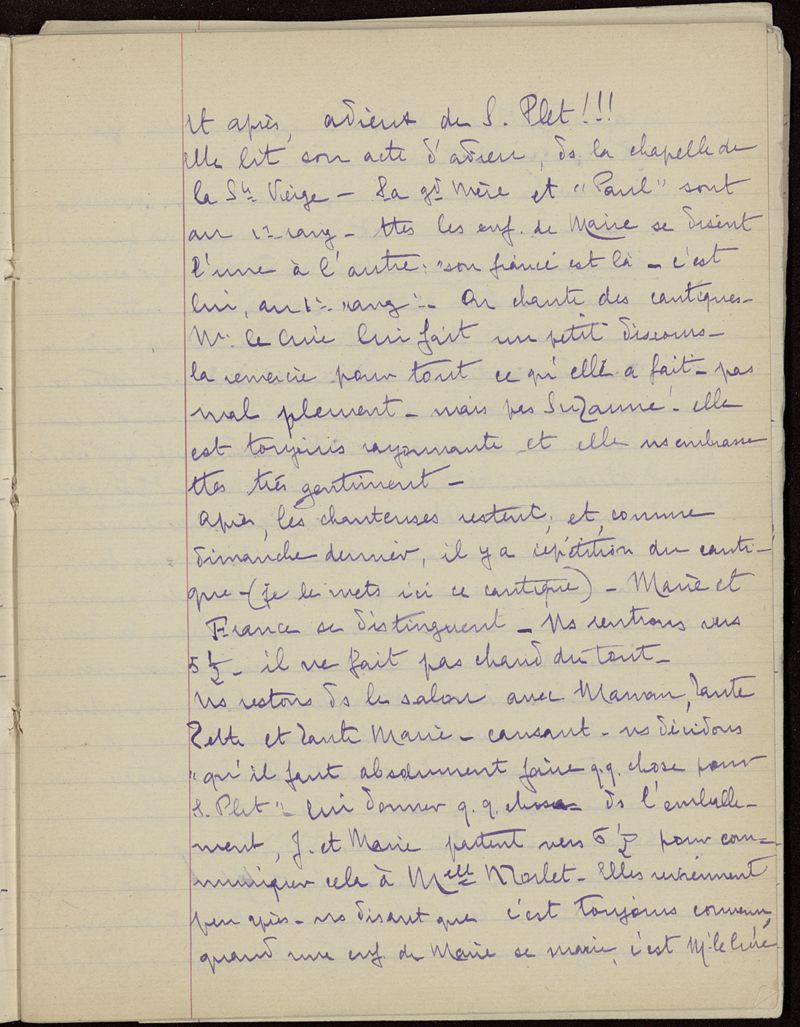 Et après, adieux de S. Plet!!!
elle lit son acte d'adieu, ds la chapelle de
la Ste Vierge – Sa gd Mère et "Paul" sont
au 1er rang – ttes les enf. de Marie se disent
l'une à l'autre : "son fiancé est là – c'est
lui, au 1er rang" – On chante des cantiques –
Mr. le Curé lui fait un petit discours –
la remercie pour tout ce qu'elle a fait – pas
mal pleurent – mais pas Suzanne! elle
est toujours rayonnante et elle ns embrasse
ttes très gentiment –
Après, les chanteuses restent, et, comme
dimanche dernier, il y a répétition du canti-
que – (je le mets ici ce cantique) – Marie et
France se distinguent – Ns rentrons vers
5 ½ – il ne fait pas chaud du tout –
Ns restons ds le salon avec Maman, Tante
et Tante Marie – causant – ns décidons
"qu'il faut absolument faire q.q. chose pour
S. Plet" – lui donner q.q. chose – ds l'emballe-
ment, J. et Marie partent vers 6 ½ pour com-
muniquer cela à Melle Morlet – Elles reviennent
peu après – ns disant que c'est toujours convenu,
quand une enf. de Marie se marie, c'est Mr. le Curé